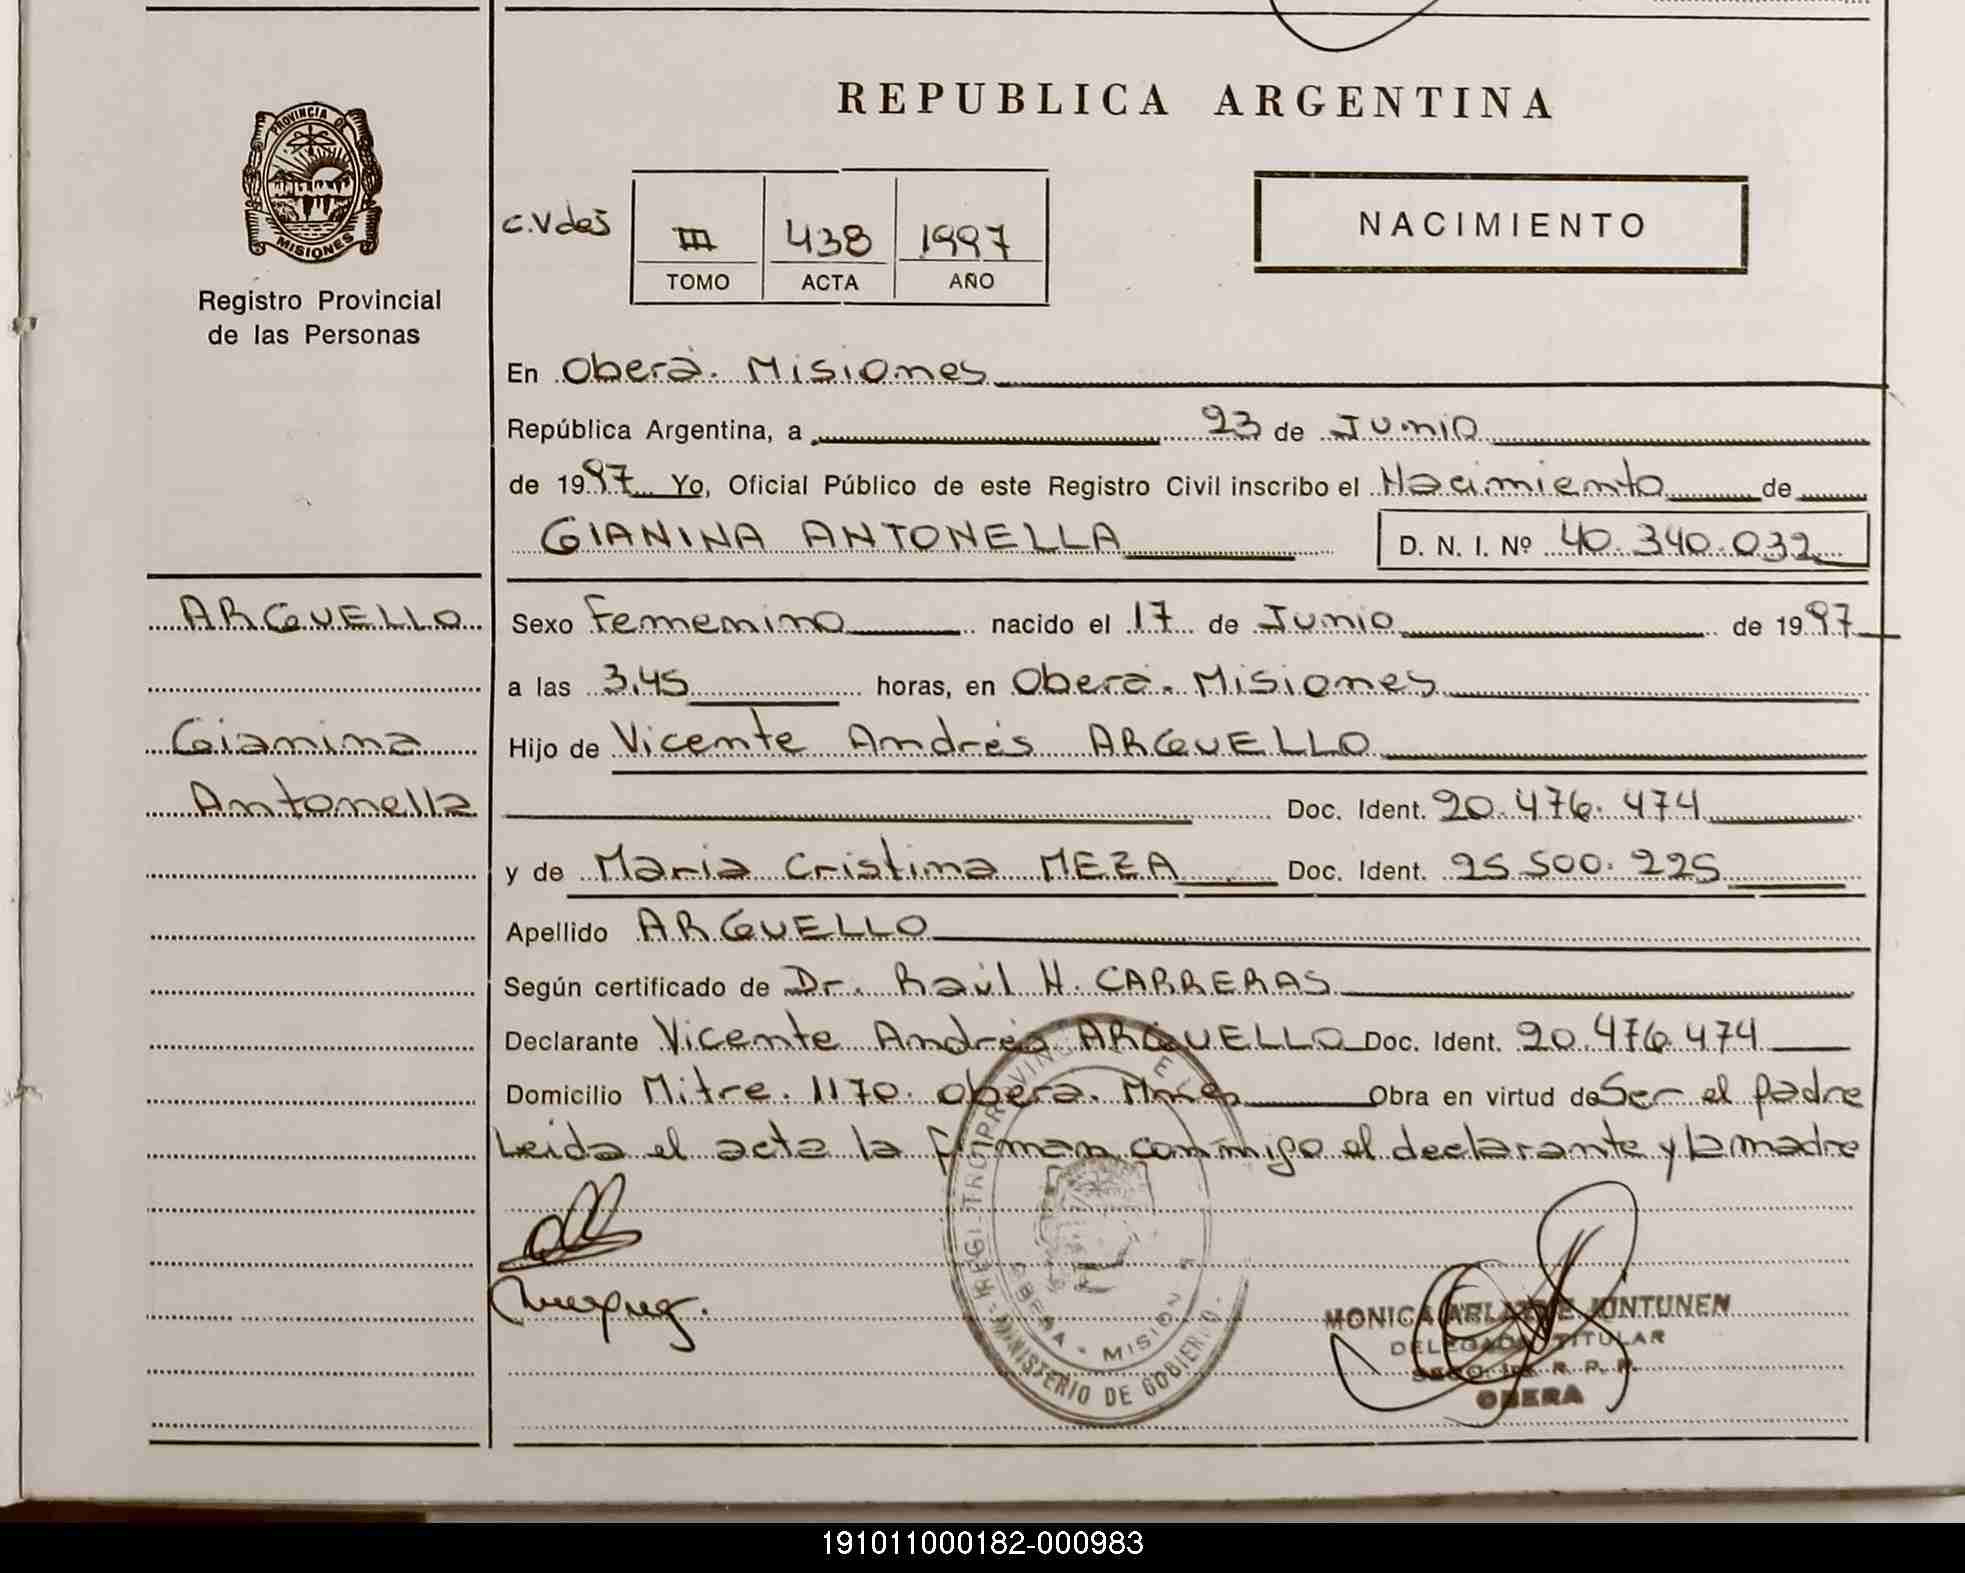 PROVINCIA DE
MISIONES
Registro Provincial
de las Personas
REPUBLICA ARGENTINA
C.Vdes III 438 1997
TOMO ACTA AÑO
NACIMIENTO
En Oberá. Misiones
República Argentina, a 23 de Junio
de 1997 Yo, Oficial Público de este Registro Civil inscribo el Nacimiento de
GIANINA ANTONELLA D. N. I. Nº 40.340.032
ARGUELLO
Gianina
Antonella
Sexo Femenino nacido el 17 de Junio de 1997
a las 3,45 horas, en Oberá. Misiones
Hijo de Vicente Andrés ARGUELLO
Doc. Ident. 20.476.474
y de Maria Cristina MEZA Doc. Ident. 25.500.225
Apellido ARGUELLO
Según certificado de Dr. Raúl H. CARRERAS
Declarante Vicente Andrés ARGUELLO Doc. Ident. 20.476.474
Domicilio Mitre. 1170. Oberá. Mnes Obra en virtud de Ser el padre
Leida el acta la firman conmigo el declarante y la madre
MINISTERIO DE GOBIERNO
OBERA - MISIONES
MONICA ARLINE JUNTUNEN
DELEGADA TITULAR
R. P. P.
OBERA
191011000182-000983